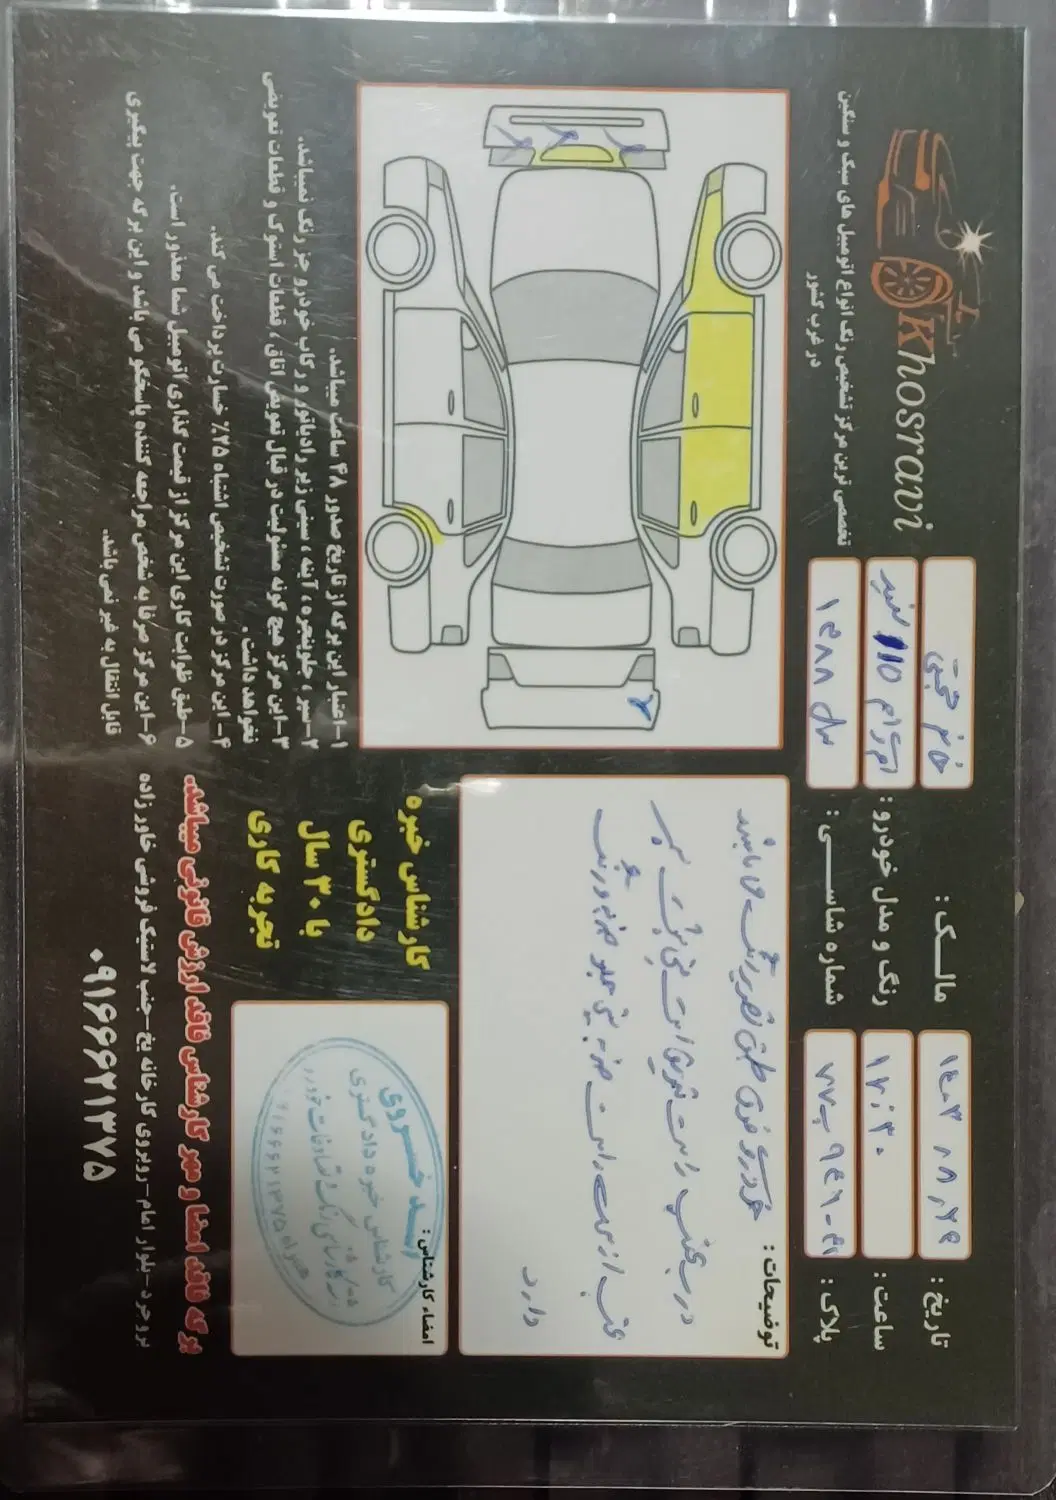 Khosravi
تخصصی ترین مرکز تشخیص رنگ انواع اتومبیل های سبک و سنگین
در غرب کشور
مالک :
رنگ و مدل خودرو : ام وی ام 110 سفید
شماره شاسی : مدل ۱۳۸۸
تاریخ : ۱۴۰۳،۸،۲۹
ساعت : ۱۷:۳۰
پلاک :
توضیحات : خودروی فوق طبق تصویر رنگ می باشد
درب عقب راست تعویض است
عقب از سمت راست ضربه
دارد
۱-اعتبار این برگه از تاریخ صدور ۴۸ ساعت میباشد.
۲-سپر ، جلوپنجره ، آینه ، سینی زیر رادیاتور و رکاب خودرو جزء رنگ نمیباشد.
۳-این مرکز هیچ گونه مسئولیت در قبال تعویض اتاق ، قطعات استوک و قطعات تعویضی
نخواهد داشت.
۴- این مرکز در صورت تشخیص اشتباه ۲۵٪ خسارت پرداخت می کند.
۵-طبق ظوابت کاری این مرکز از قیمت گذاری اتومبیل شما معذور است.
۶-این مرکز صرفا به شخص مراجعه کننده پاسخگو می باشد و این برگه جهت پیگیری
قابل انتقال به غیر نمی باشد.
کارشناس خبره
دادگستری
با ۳۰ سال
تجربه کاری
امضاء کارشناس :
خسروی
کارشناس خبره دادگستری
همراه ۰۹۱۶۶۶۲۱۳۷۵
برگه فاقد امضا و مهر کارشناس فاقد ارزش قانونی میباشد.
بروجرد-بلوار امام-روبروی کارخانه یخ-جنب لاستیک فروشی خاور زاده
۰۹۱۶۶۶۲۱۳۷۵